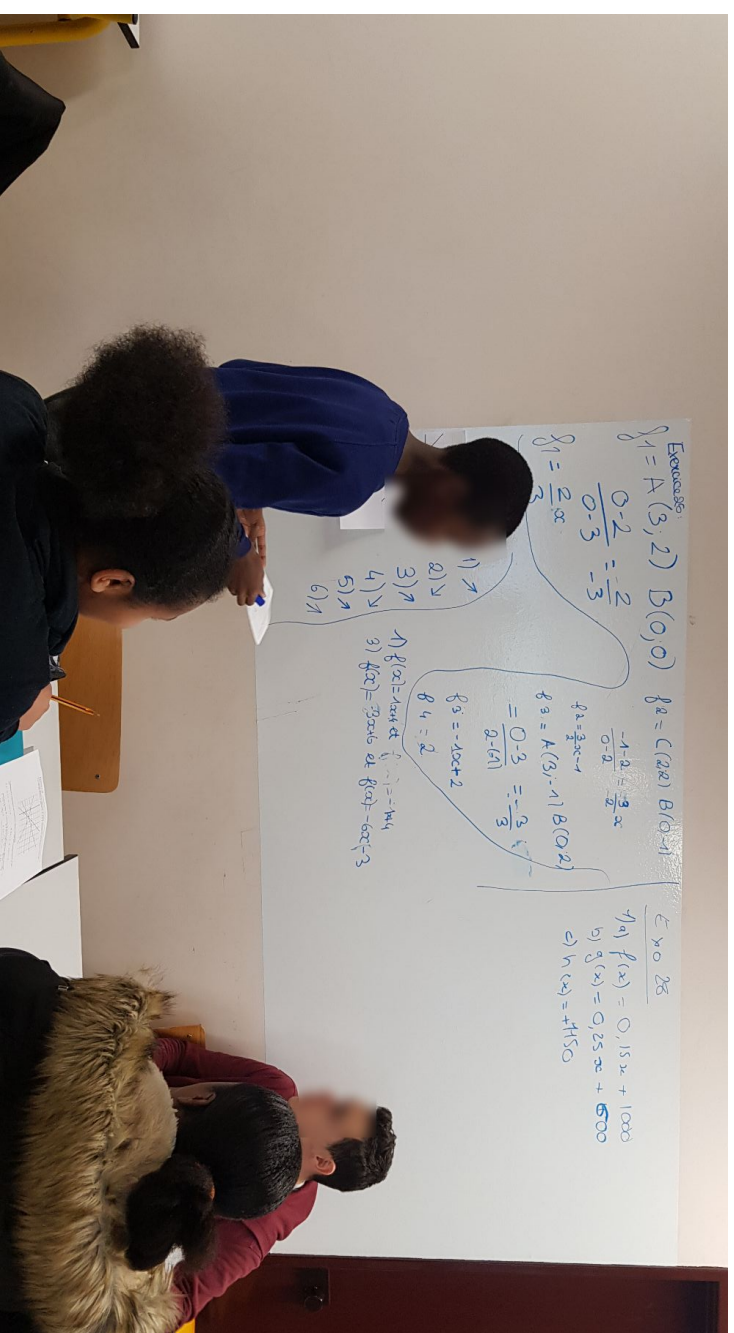 Exercice 26:
f1 = A(3;2) B(0;0)
0-2 / 0-3 = -2 / -3
f1 = 2/3 x
f2 = C(2;2) B(0;-1)
-1-2 / 0-2 = -3 / -2 x
f2 = 3/2 x-1
f3 = A(3;-1) B(0;2)
= 0-3 / 2-(-1) = -3 / 3
f3 = -1x+2
f4 = 2
1) ↗
2) ↘
3) ↗
4) ↘
5) ↗
6) ↗
1) f(x)=1x+4 et
3) f(x)= 3x+6 et f(x)=-6x-3
Exo 28
1) a) f(x) = 0,15x + 1000
b) g(x) = 0,25x + 600
c) h(x) = +1150